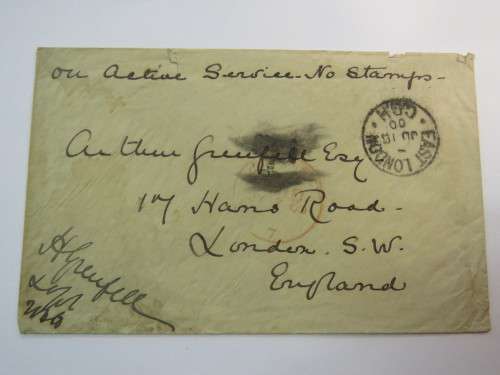 on Active Service - No Stamps -
Arthur Grenfell Esq
17 Hans Road -
London. S.W.
England
HGrenfell
EAST LONDON
JU 18
00
CGH